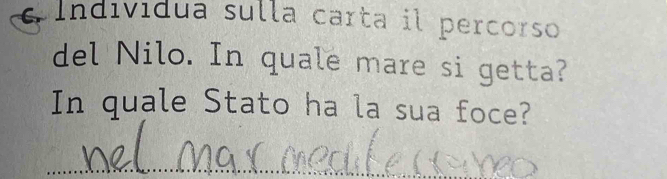 c. Individua sulla carta il percorso
del Nilo. In quale mare si getta?
In quale Stato ha la sua foce?
nel mar mediterraneo